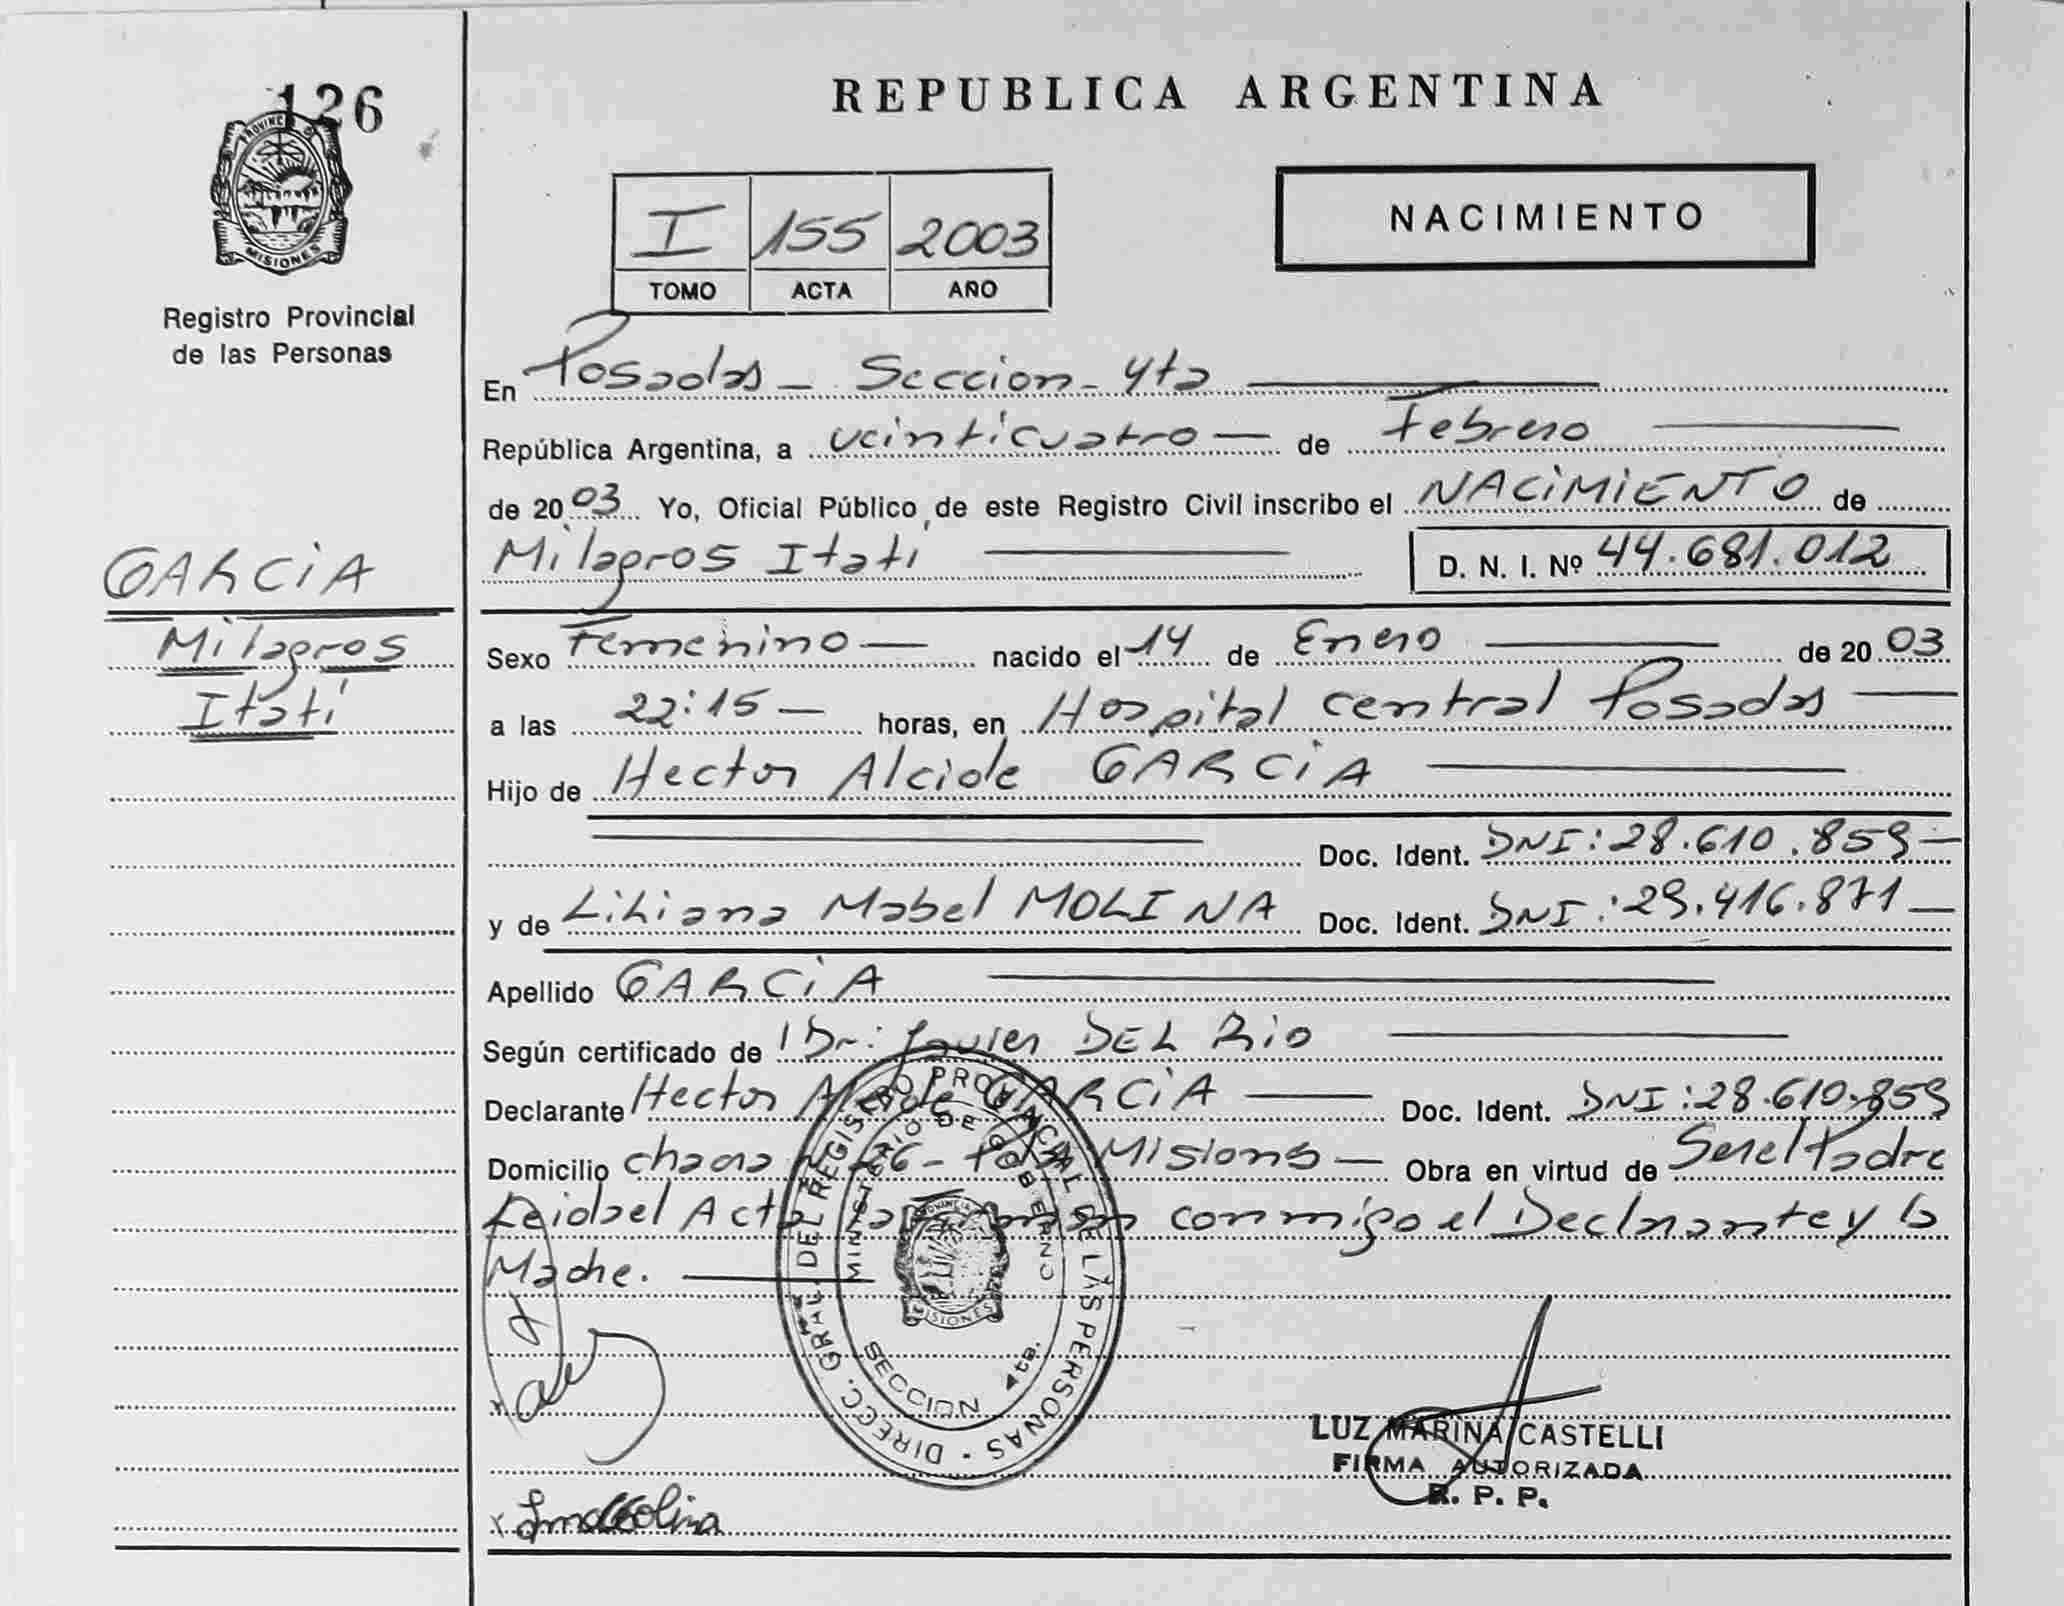 126
PROVINCIA DE
MISIONES
Registro Provincial
de las Personas
GARCIA
Milagros
Itatí
REPUBLICA ARGENTINA
I 155 2003
TOMO ACTA AÑO
NACIMIENTO
En Posadas - Seccion - 4ta
República Argentina, a veinticuatro de Febrero
de 2003 Yo, Oficial Público de este Registro Civil inscribo el NACIMIENTO de
Milagros Itatí D. N. I. Nº 44.681.012
Sexo Femenino nacido el 14 de Enero de 2003
a las 22:15 horas, en Hospital central Posadas
Hijo de Hector Alcide GARCIA
Doc. Ident. DNI: 28.610.859
y de Liliana Mabel MOLINA Doc. Ident. DNI: 29.416.871
Apellido GARCIA
Según certificado de Dr: Javier DEL RIO
Declarante Hector Alcide GARCIA Doc. Ident. DNI: 28.610.859
Domicilio chacra 26 - Misiones Obra en virtud de Ser el Padre
Leida el Acta conmigo el Declarante y la
Madre.
DIRECC. GRAL. DEL REGISTRO PROVINCIAL DE LAS PERSONAS
MINISTERIO DE GOBIERNO
MISIONES
SECCION 4ta.
LUZ MARINA CASTELLI
FIRMA AUTORIZADA
R. P. P.